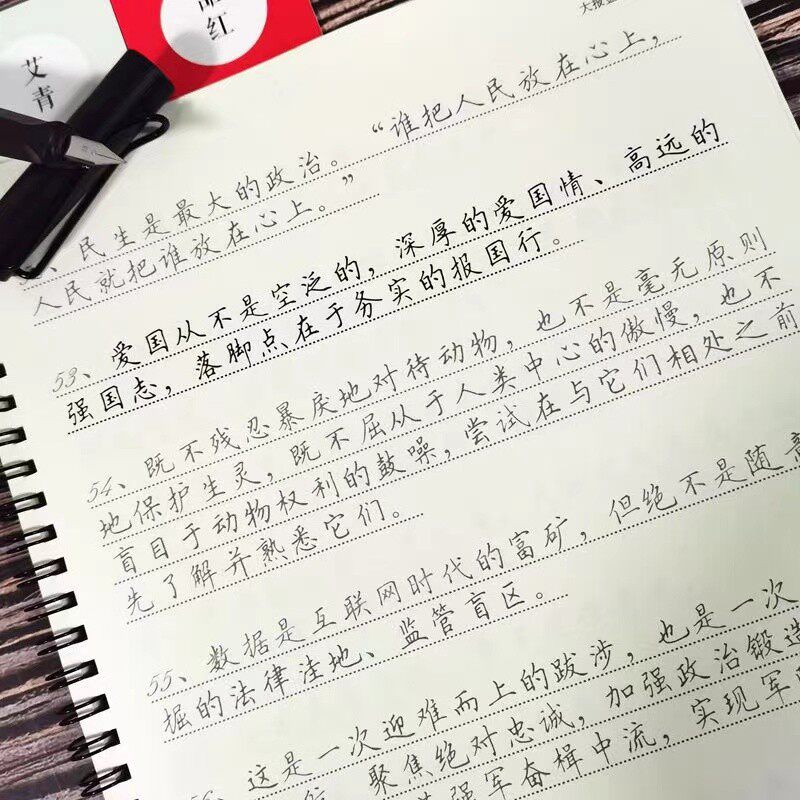 艾青
红
、民生是最大的政治。“谁把人民放在心上，
人民就把谁放在心上。”
53、爱国从不是空泛的，深厚的爱国情、高远的
强国志，落脚点在于务实的报国行。
54、既不残忍暴戾地对待动物，也不是毫无原则
地保护生灵，既不屈从于人类中心的傲慢，也不
盲目于动物权利的鼓噪，尝试在与它们相处之前
先了解并熟悉它们。
55、数据是互联网时代的富矿，但绝不是随意
掘的法律洼地、监管盲区。
56、这是一次迎难而上的跋涉，也是一次
聚焦绝对忠诚，加强政治锻造
强军奋楫中流，实现军